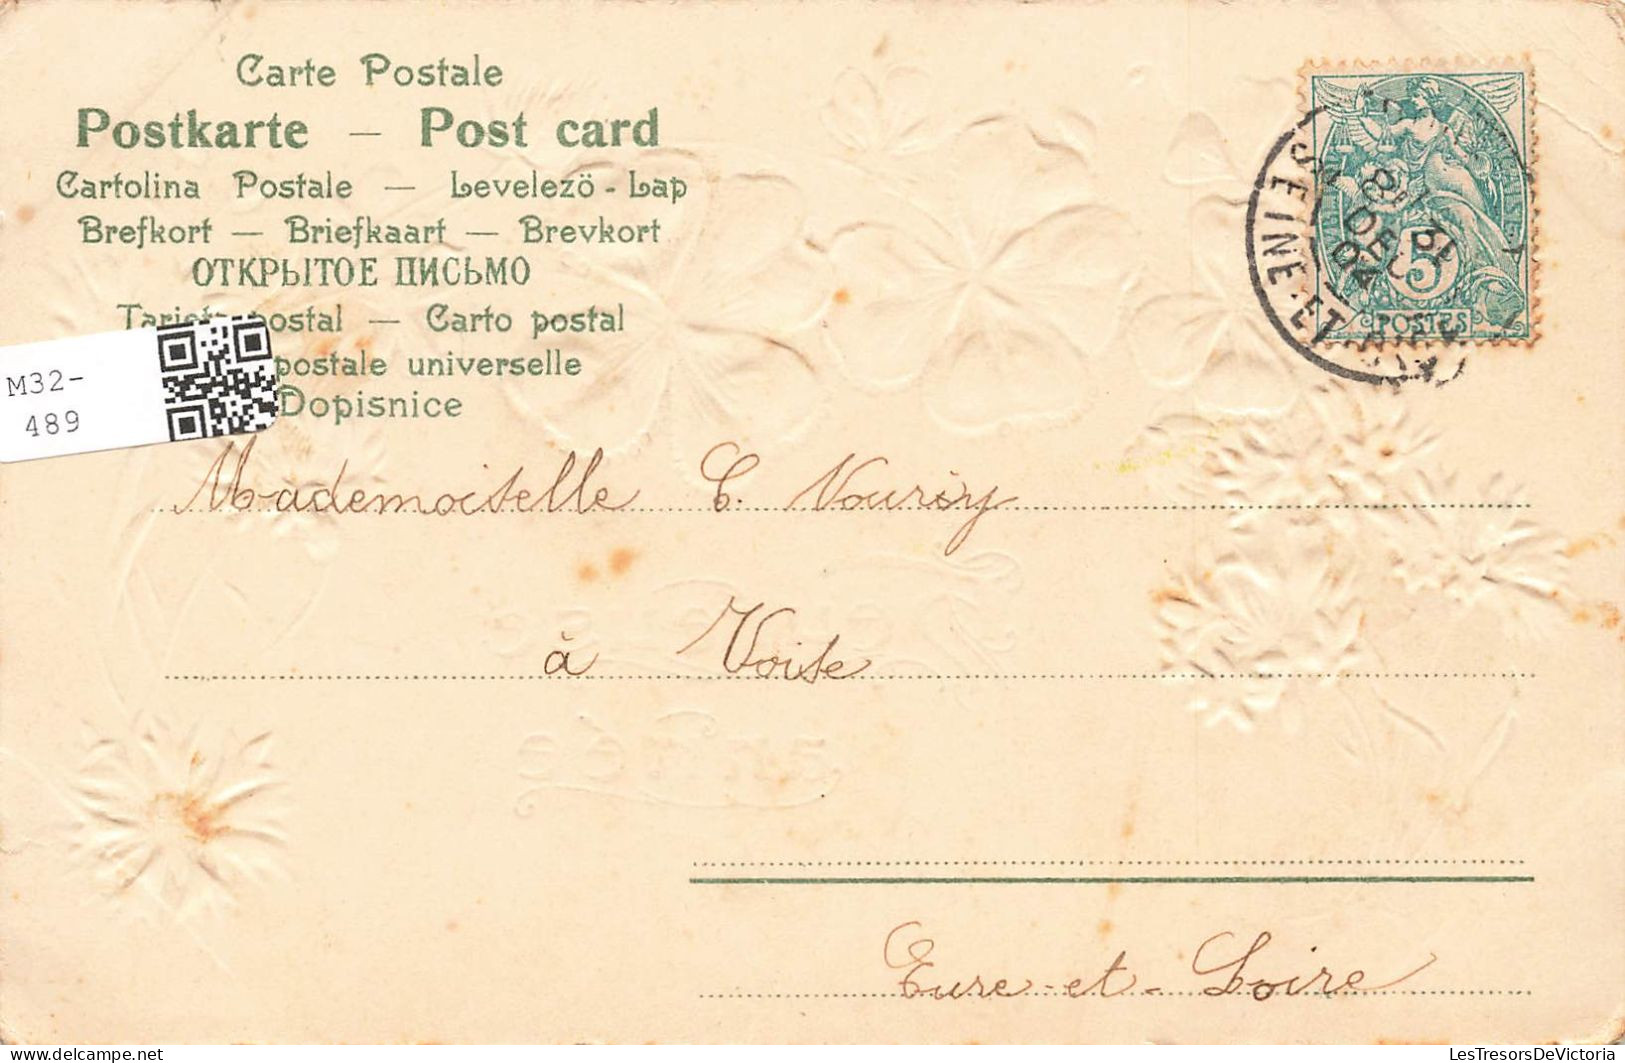 Carte Postale
Postkarte — Post card
Cartolina Postale — Levelezö - Lap
Brefkort — Briefkaart — Brevkort
ОТКРЫТОЕ ПИСЬМО
Tarjeta postal — Carto postal
postale universelle
Dopisnice
M32-
489
SEINE-ET-
31
DEC
04
5
POSTES
Mademoiselle C. Vouriy
à Voise
année
Eure-et-Loire
LesTresorsDeVictoria
delcampe.net